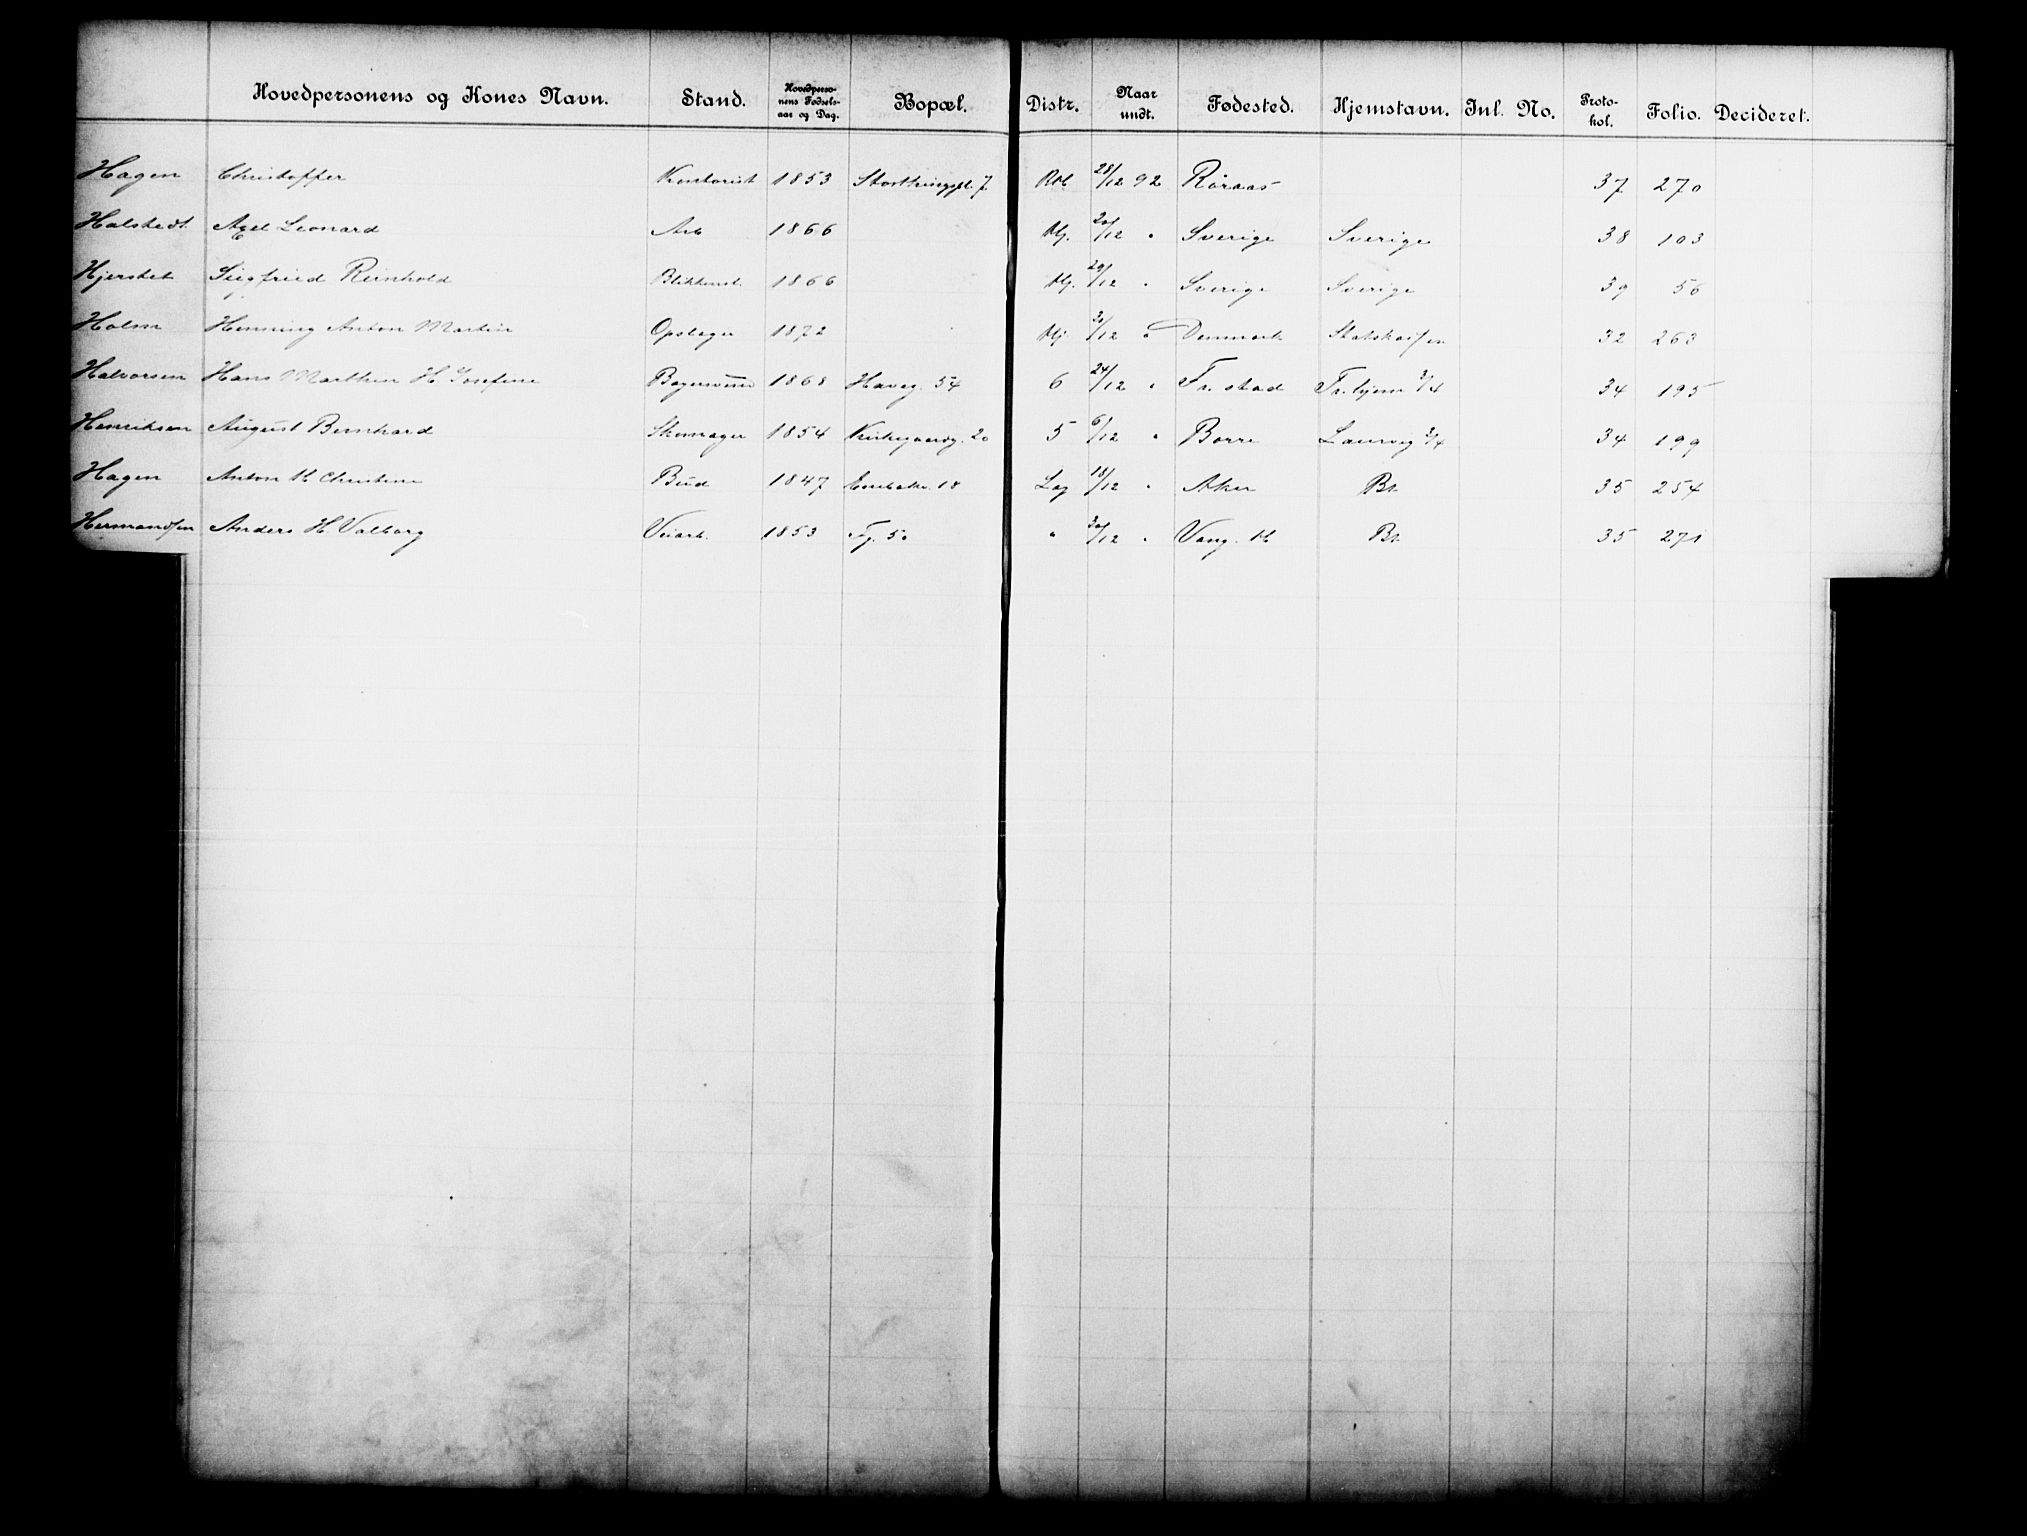 Hovedpersonens og Kones Navn. Stand. Hovedperso-nens Fødsels-aar og Dag. Bopæl. Distr. Naar undt. Fødested. Hjemstavn. Inl. No. Proto-kol. Folio. Decideret.
Hagen Christoffer Kontorist 1853 Storthingspl. 7 28/12 92 Røraas 37 270
Halstedt Axel Leonard Arb 1866 Hj. 20/12 " Sverige Sverige 38 103
Hjerstet Siegfried Reinhold Blikkensl. 1866 Hj. 29/12 " Sverige Sverige 39 56
Holm Henning Anton Martin Opslager 1872 Hj. /12 " Danmark 32 263
Halvorsen Hans Marthin H. Josefine Bagersvend 1868 Haveg. 54 6 24/12 " Fr.stad 34 195
Henriksen August Bernhard Skomager 1854 Kirkegaardg. 20 5 6/12 " Borre Laurvig 34 199
Hagen Anton Christine Bud 1847 18 Lag 18/12 " Aker Bt. 35 254
Hermandsen Anders H. Valborg Veiarb. 1853 50 " 30/12 " Vang. H Bt. 35 271